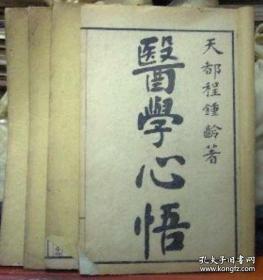 天都程鍾齡著
醫學心悟
孔夫子旧书网